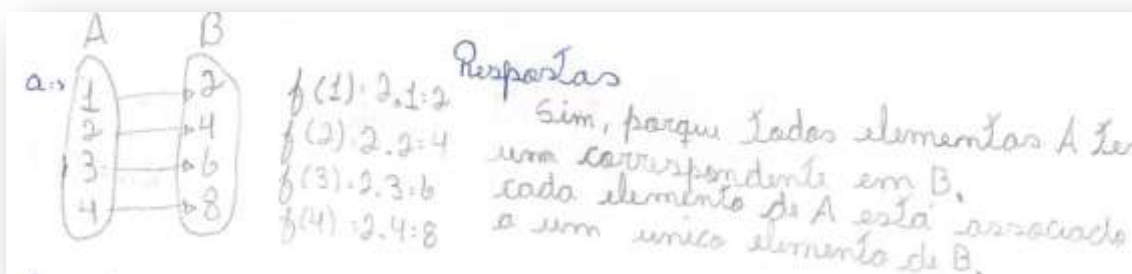 A B
a:>
1 2
2 4
3 6
4 8
f(1):2.1:2
f(2):2.2:4
f(3):2.3:6
f(4):2.4:8
Respostas
Sim, porque todos elementos A te
um correspondente em B.
cada elemento de A está associado
a um unico elemento de B.